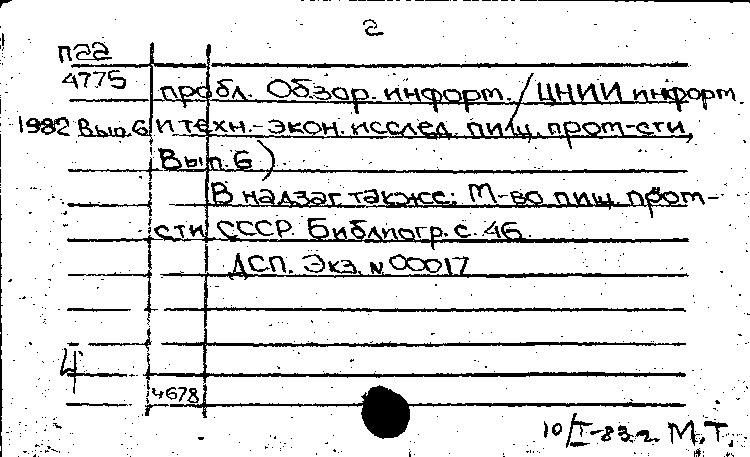 2
паа
4775
пробл. Обзор. информ. / ЦНИИ информ.
1982 Вып. 6 и техн.-экон. исслед. пищ. пром-сти,
Вып. 6)
В надзаг. также: М-во пищ. пром-
сти СССР. Библиогр. с. 46.
ДСП. Экз. N 00017
4
4678
10/I-83г. М.Т.